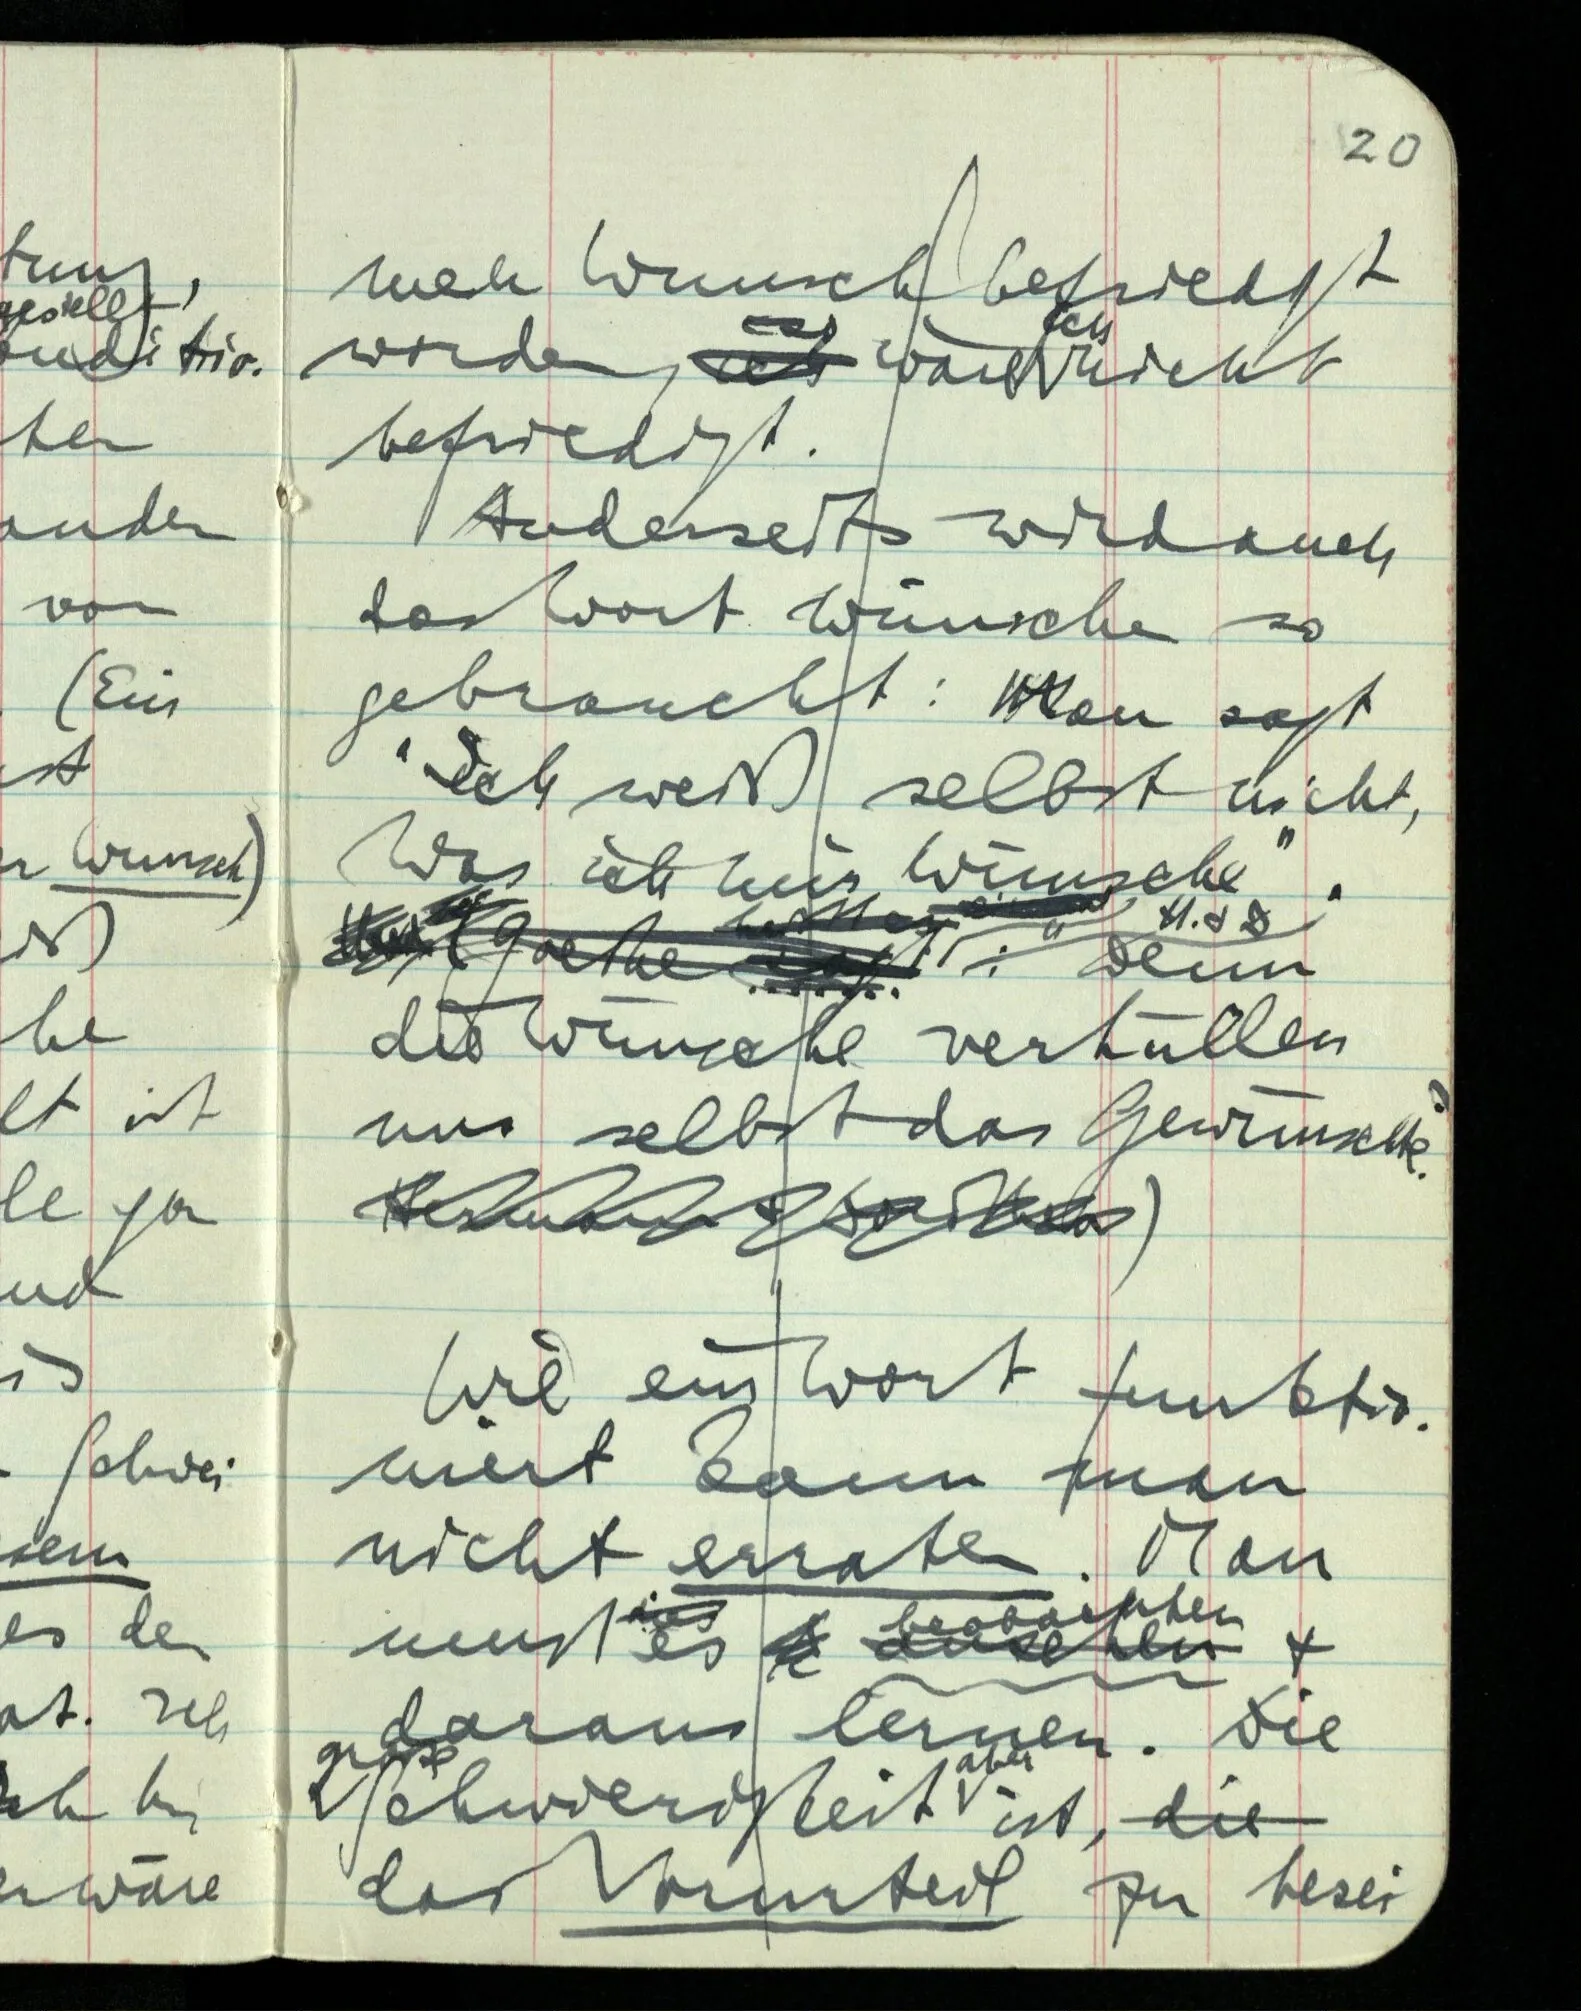 20
tung,
gestellt,
onditio.
ten
ander
von
(Ein
st
r Wunsch)
iß
he
lt ist
le ga
und
is
Schwei
sem
es den
at. Ich
ch b
er wäre
mein Wunsch befriedigt
ist
ich
worden, wäre nicht
befriedigt.
Anderseits wird auch
das Wort wünschen so
gebraucht: Man sagt
"Ich weiß selbst nicht,
was ich mir wünsche".
H. & D.
(Goethe sagt: "Denn
die Wünsche verhüllen
uns selbst das Gewünschte".
Hermann & Dorothea)
Wie ein Wort funktio-
niert kann man
nicht erraten. Man
beobachten
muß es ansehen &
daraus lernen. Die
große
aber
Schwierigkeit ist, die
das Vorurteil zu besei